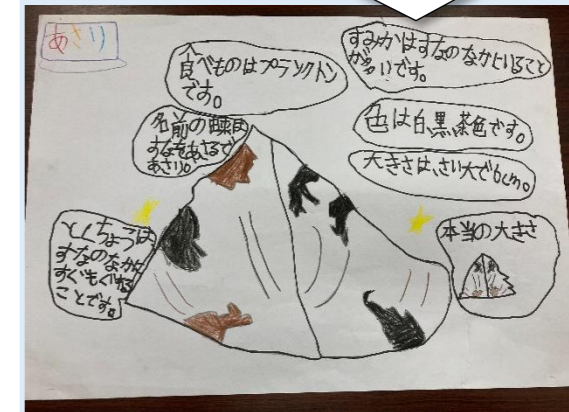 あさり
食べものはプランクトン
です。
すみかはすなのなかにいること
が多いです。
名前の由来は
すなをあさるで
あさり。
色は白、黒、茶色です。
大きさは、さい大で6cm。
とくちょうは
すなのなかに
すぐもぐれる
ことです。
本当の大きさ